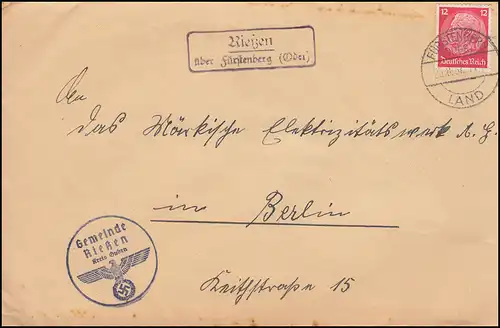 Rießen
über Fürstenberg (Oder)
12 12
Deutsches Reich
FÜRSTENBERG
LAND
An
das Märkische Elektrizitätswerk A.G.
in Berlin
Keithstraße 15
Gemeinde
Rießen
Kreis Guben